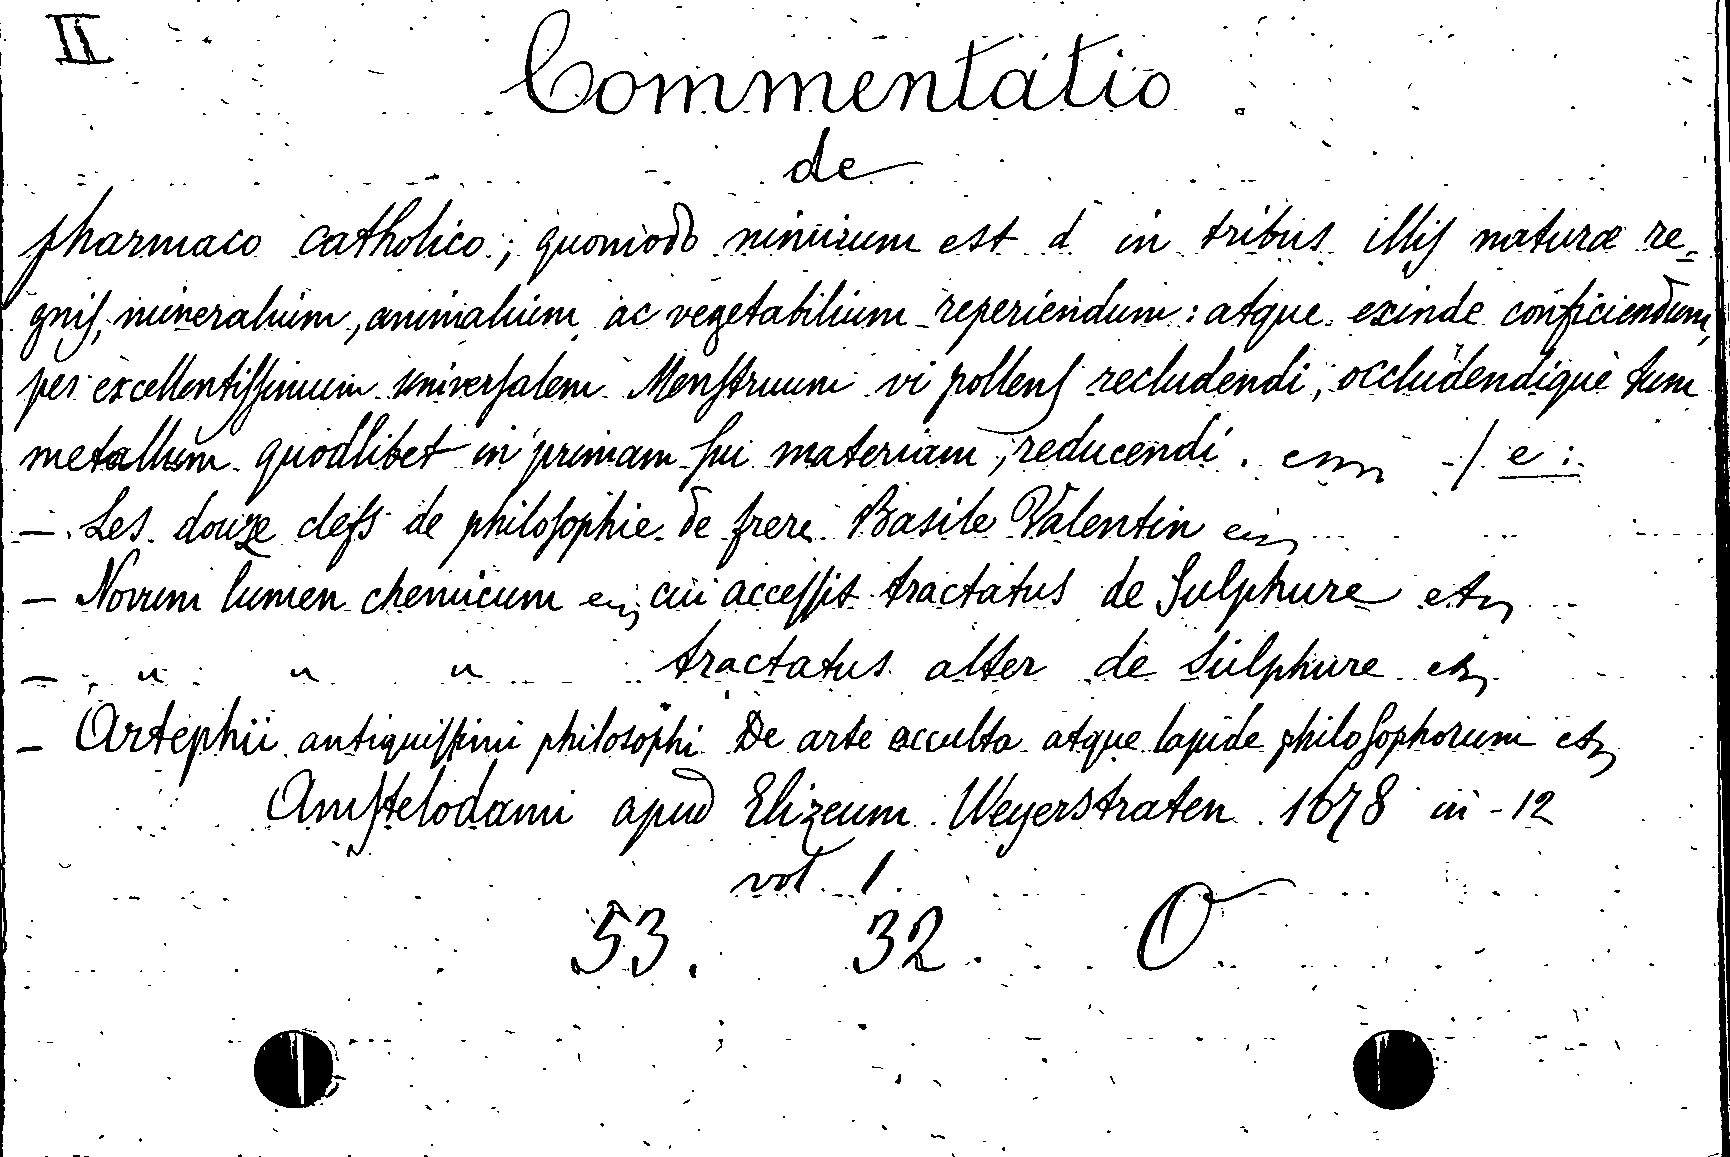 II
Commentatio
de
pharmaco catholico; quomodo nimirum est d in tribus illis naturæ re-
gnis, mineralium, animalium ac vegetabilium reperiendum: atque exinde conficiendum,
per excellentissimum universalem Menstruum vi pollens recludendi, occludendique tum
metallum quodlibet in primam sui materiam, reducendi.
— Les douze clefs de philosophie de frere Basile Valentin
— Novum lumen chemicum cui accessit tractatus de Sulphure etc
— " " " tractatus alter de Sulphure etc
— Artephii antiquissimi philosophi De arte occulta atque lapide philosophorum etc
Amstelodami apud Elizeum Weyerstraten 1678 in-12
vol. 1.
53. 32. O